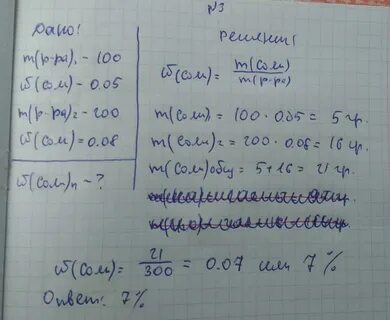 №3
Дано:
m(р-ра)₁ - 100
ω(сом) - 0.05
m(р-ра)₂ - 200
ω(сом) = 0.08
ω(сом)п - ?
Решение:
ω(сом) = m(сом) / m(р-ра)
m(сом)₁ = 100 · 0.05 = 5 гр.
m(сом)₂ = 200 · 0.08 = 16 гр.
m(сом)общ = 5+16 = 21 гр.
ω(сом) = 21/300 = 0.07 или 7%
Ответ: 7%